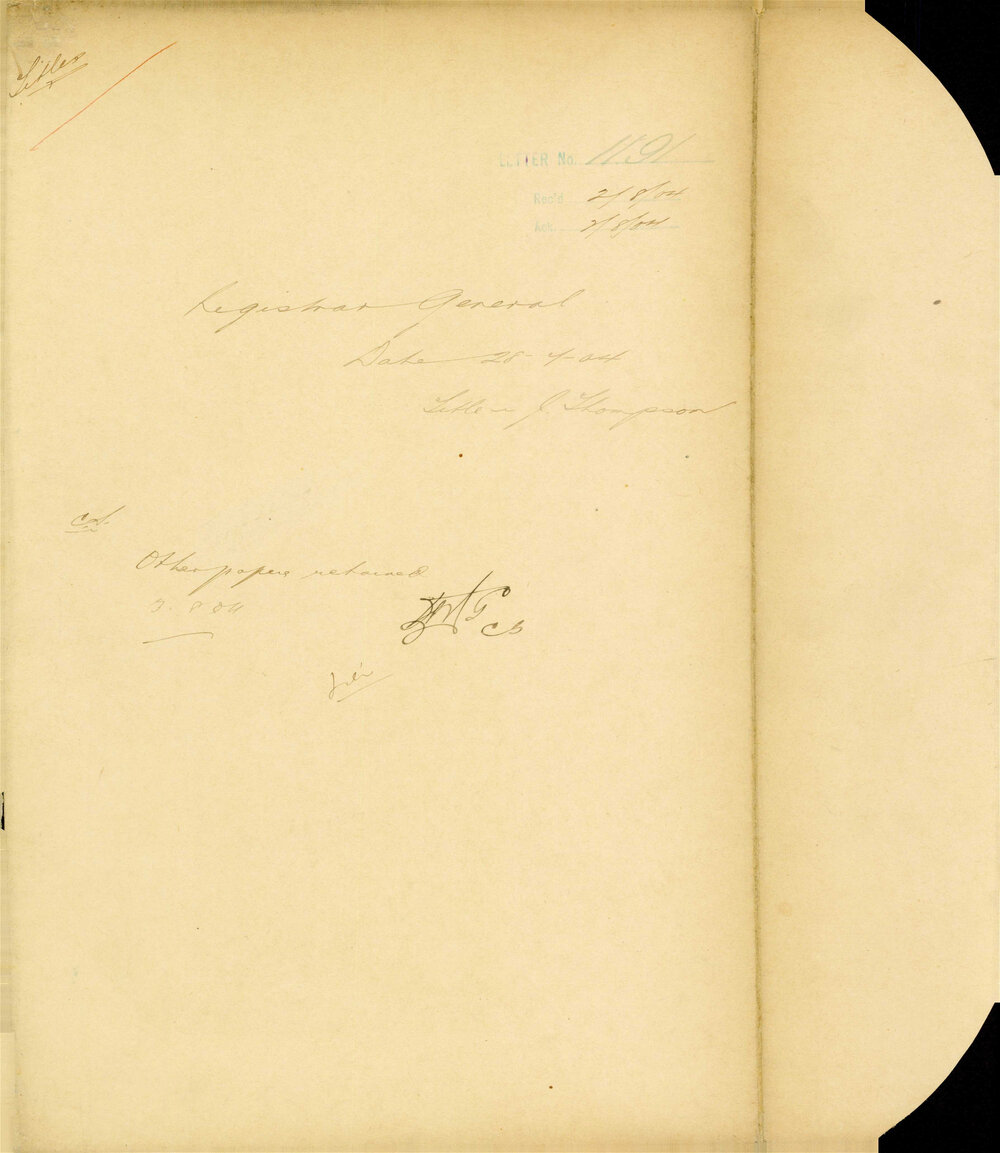 Titles
LETTER No. 1191
Rec'd 2/8/04
Ack. 2/8/04
Registrar General
Date 28-7-04
Title J. Thompson
Other papers returned
2 8 04